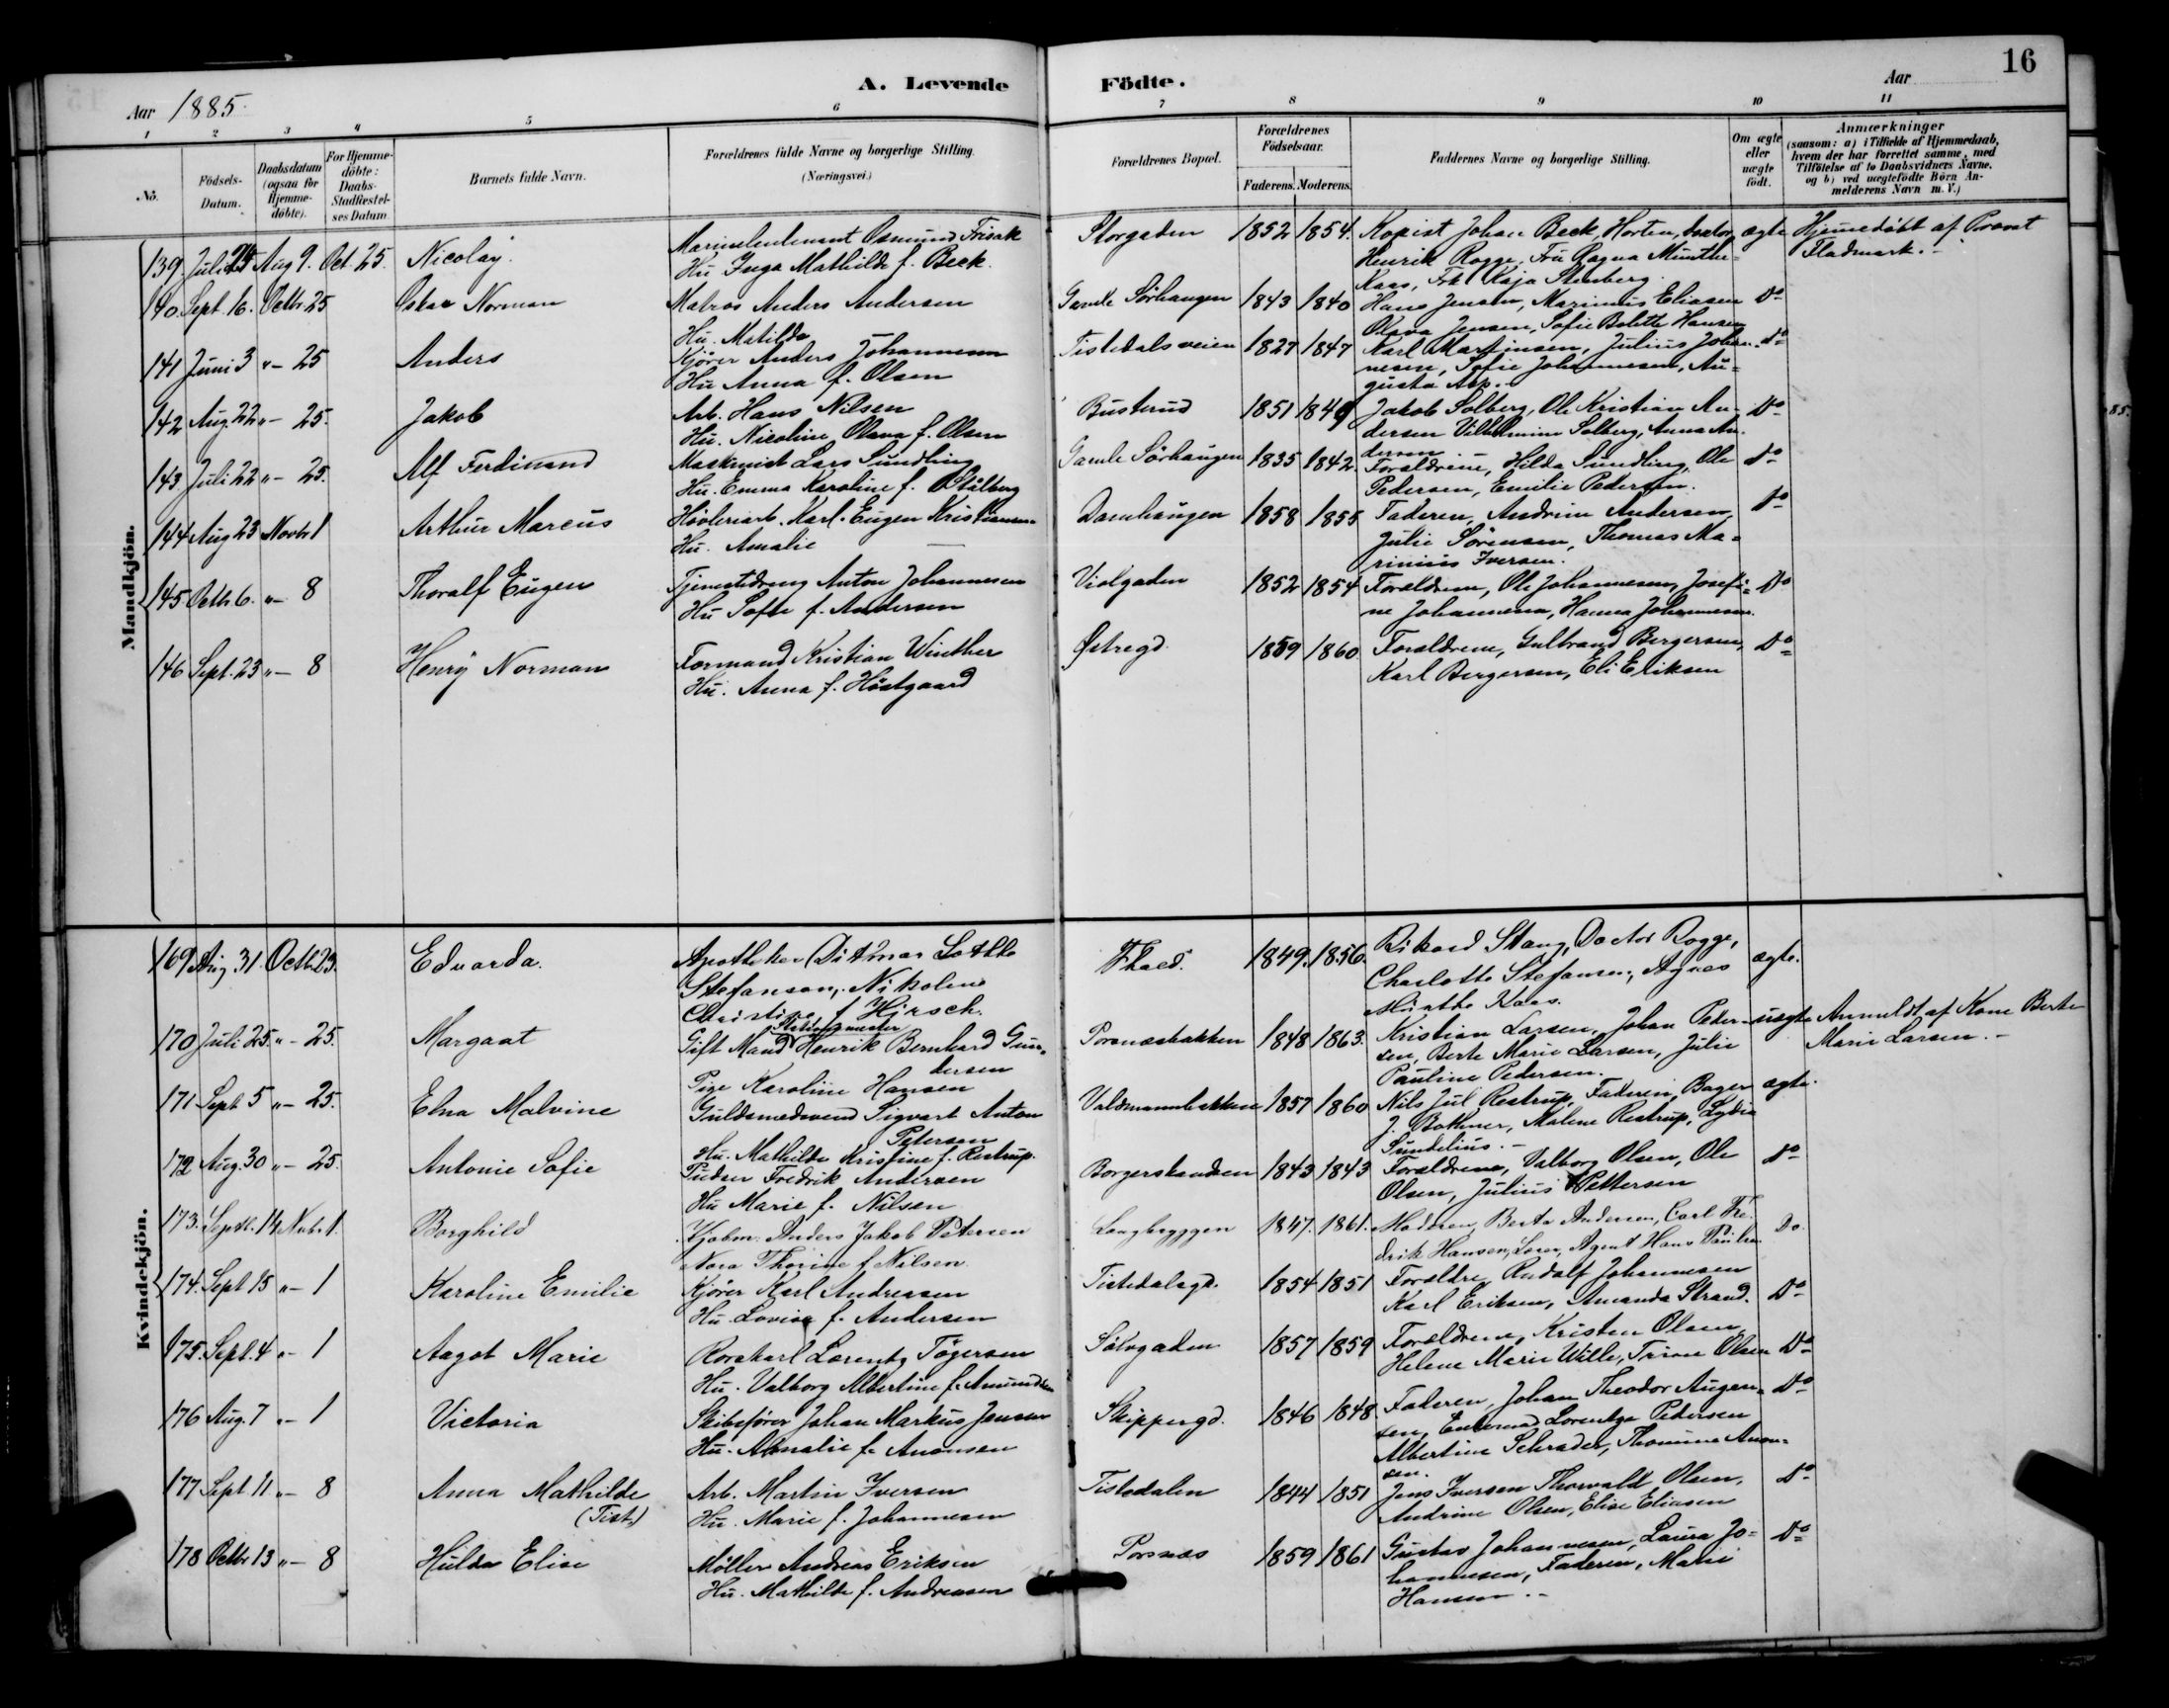 16
A. Levende Födte.
Aar 1885.
Aar
1 2 3 4 5 6 7 8 9 10 11
No.
Födsels-Datum.
Daabsdatum (ogsaa for Hjemmedöbte).
For Hjemmedöbte: Daabs-Stadfæstelses Datum
Barnets fulde Navn.
Forældrenes fulde Navne og borgerlige Stilling.
(Næringsvei.)
Forældrenes Bopæl.
Forældrenes Födselsaar.
Faderens. Moderens.
Faddernes Navne og borgerlige Stilling.
Om ægte eller uægte födt.
Anmærkninger
(saasom: a) i Tilfælde af Hjemmedaab,
hvem der har forrettet samme, med
Tilföielse af to Daabsvidners Navne,
og b) ved uægtefödte Börn An-
melderens Navn m. V.)
Mandkjön.
139. Juli 25 Aug 9. Oct. 25. Nicolay. Marinelieutenant Osmund Frisak Storgaden 1852 1854. Kopist Johan Beck, Horten, Doctor ægte Hjemmedöbt af Provst
Hu Inga Mathilde f. Beck. Henrik Rogge, Fru Ragna Munthe- Fladmark.-
Kaas, Frk Kaja Stenberg
140. Sept. 16. Octbr. 25 Oskar Norman Matros Anders Andersen Gamle Sörhaugen 1843 1840 Hans Jensen, Marinius Eliasen Do
Hu. Matilda Olava Jensen, Sofie Bolette Hansen
141 Juni 3 "- 25 Anders Kjörer Anders Johannesen Tistedalsveien 1827 1847 Karl Martinsen, Julius Johan- Do
Hu Anna f. Olsen nesen, Sofie Johannesen, Au-
gusta Asp.-
142 Aug. 22 "- 25. Jakob Arb. Hans Nilsen Busterud 1851 1849 Jakob Solberg, Ole Kristian An- Do
Hu. Nicoline Olava f. Olsen dersen Vilhelmine Solberg, Anna An-
dersen
143. Juli 22 "- 25. Alf Ferdinand Maskinist Lars Sundling Gamle Sörhaugen 1835 1842. Forældrene, Hilda Sundling, Ole Do
Hu. Emma Karoline f. Stålberg Pedersen, Emilie Pedersen.
144 Aug 23 Novbr 1 Arthur Marcus Hövleriarb. Karl Eugen Kristiansen Damhaugen 1858 1855 Faderen, Andrine Andersen, Do
Hu. Amalie Julie Sörensen, Thomas Ma-
rinius Iversen.
145. Octb 6. "- 8 Thoralf Eugen Tjenestedreng Anton Johannesen Violgaden 1852 1854 Forældrene, Ole Johannesen, Josefi- Do
Hu Sofie f. Andersen ne Johannesen, Hanna Johannesen.
146 Sept. 23 "- 8 Henry Norman Formand Kristian Winther Østregd. 1859 1860. Forældrene, Gulbrand Bergersen, Do
Hu. Anna f. Höstgaard Karl Bergersen, Eli Eriksen
Kvindekjön.
169 Aug. 31. Octb 23. Eduarda. Apotheker Ditmar Lothko 1849. 1856. Rikard Stang, Doctor Rogge, ægte.
Stefanson, Nikoline Charlotte Stefanson, Agnes
Christine f Hirsch. Munthe Kaas.
170 Juli 25. "- 25. Margaat Gift Mand Henrik Bernhard Gun- Porsnæsbakken 1848 1863. Kristian Larsen, Johan Peder- uægte Anmeldt af Kone Berte
dersen sen, Berte Marie Larsen, Julie Marie Larsen.-
Pige Karoline Hansen Pauline Pedersen.
171 Sept 5 "- 25. Elna Malvine Guldsmedsvend Sigvart Anton Valdmannbakken 1857 1860 Nils Jul Restrup, Faderen, Bager ægte.
Petersen J. Bothner, Malene Restrup, Lydia
Hu. Mathilde Kristine f. Restrup. Sundelius.-
172 Aug. 30 "- 25. Antonie Sofie Fredrik Andersen Borgerskandsen 1843 1843 Forældrene, Valborg Olsen, Ole Do
Hu Marie f. Nilsen Olsen, Julius Pettersen
173. Septb. 14 Novbr. 1. Borghild Kjöbm. Anders Jakob Petersen Langbryggen 1847. 1861. Moderen, Berta Andersen, Carl Fre- Do.
Nora Thorine f Nilsen. drik Hansen, Agent Hans Paulsen
174. Sept 15 "- 1 Karoline Emilie Kjörer Karl Andreasen Tistedalsgd. 1854 1851 Forældre, Rudolf Johannesen
Hu. Lovise f. Andersen Karl Eriksen, Amanda Strand. Do
175. Sept. 4 "- 1 Aagot Marie Rorskarl Lorentz Tögersen Sölvgaden 1857 1859 Forældrene, Kristen Olsen,
Hu. Valborg Albertine f. Amundsen Helene Marie Wille, Trine Olsen Do
176 Aug. 7 "- 1 Victoria Skibsförer Johan Markus Jensen Skippergd. 1846 1848. Faderen, Johan Theodor Augen- Do
Hu. Amalie f. Anonsen sen, Lorentze Pedersen
Albertine Schrader, Thomine Anon-
sen.
177 Sept 11 "- 8 Anna Mathilde Arb. Martin Iversen Tistedalen 1844 1851 Jens Iversen Thorvald Olsen, Do
(Tist.) Hu. Marie f. Johannesen Andrine Olsen, Elise Eliasen
178 Octbr 13 "- 8 Hulda Elise Möller Andreas Eriksen Porsnæs 1859 1861 Gustav Johannesen, Laura Jo- Do
Hu. Mathilde f. Andreasen hannesen, Faderen, Marie
Hansen.-